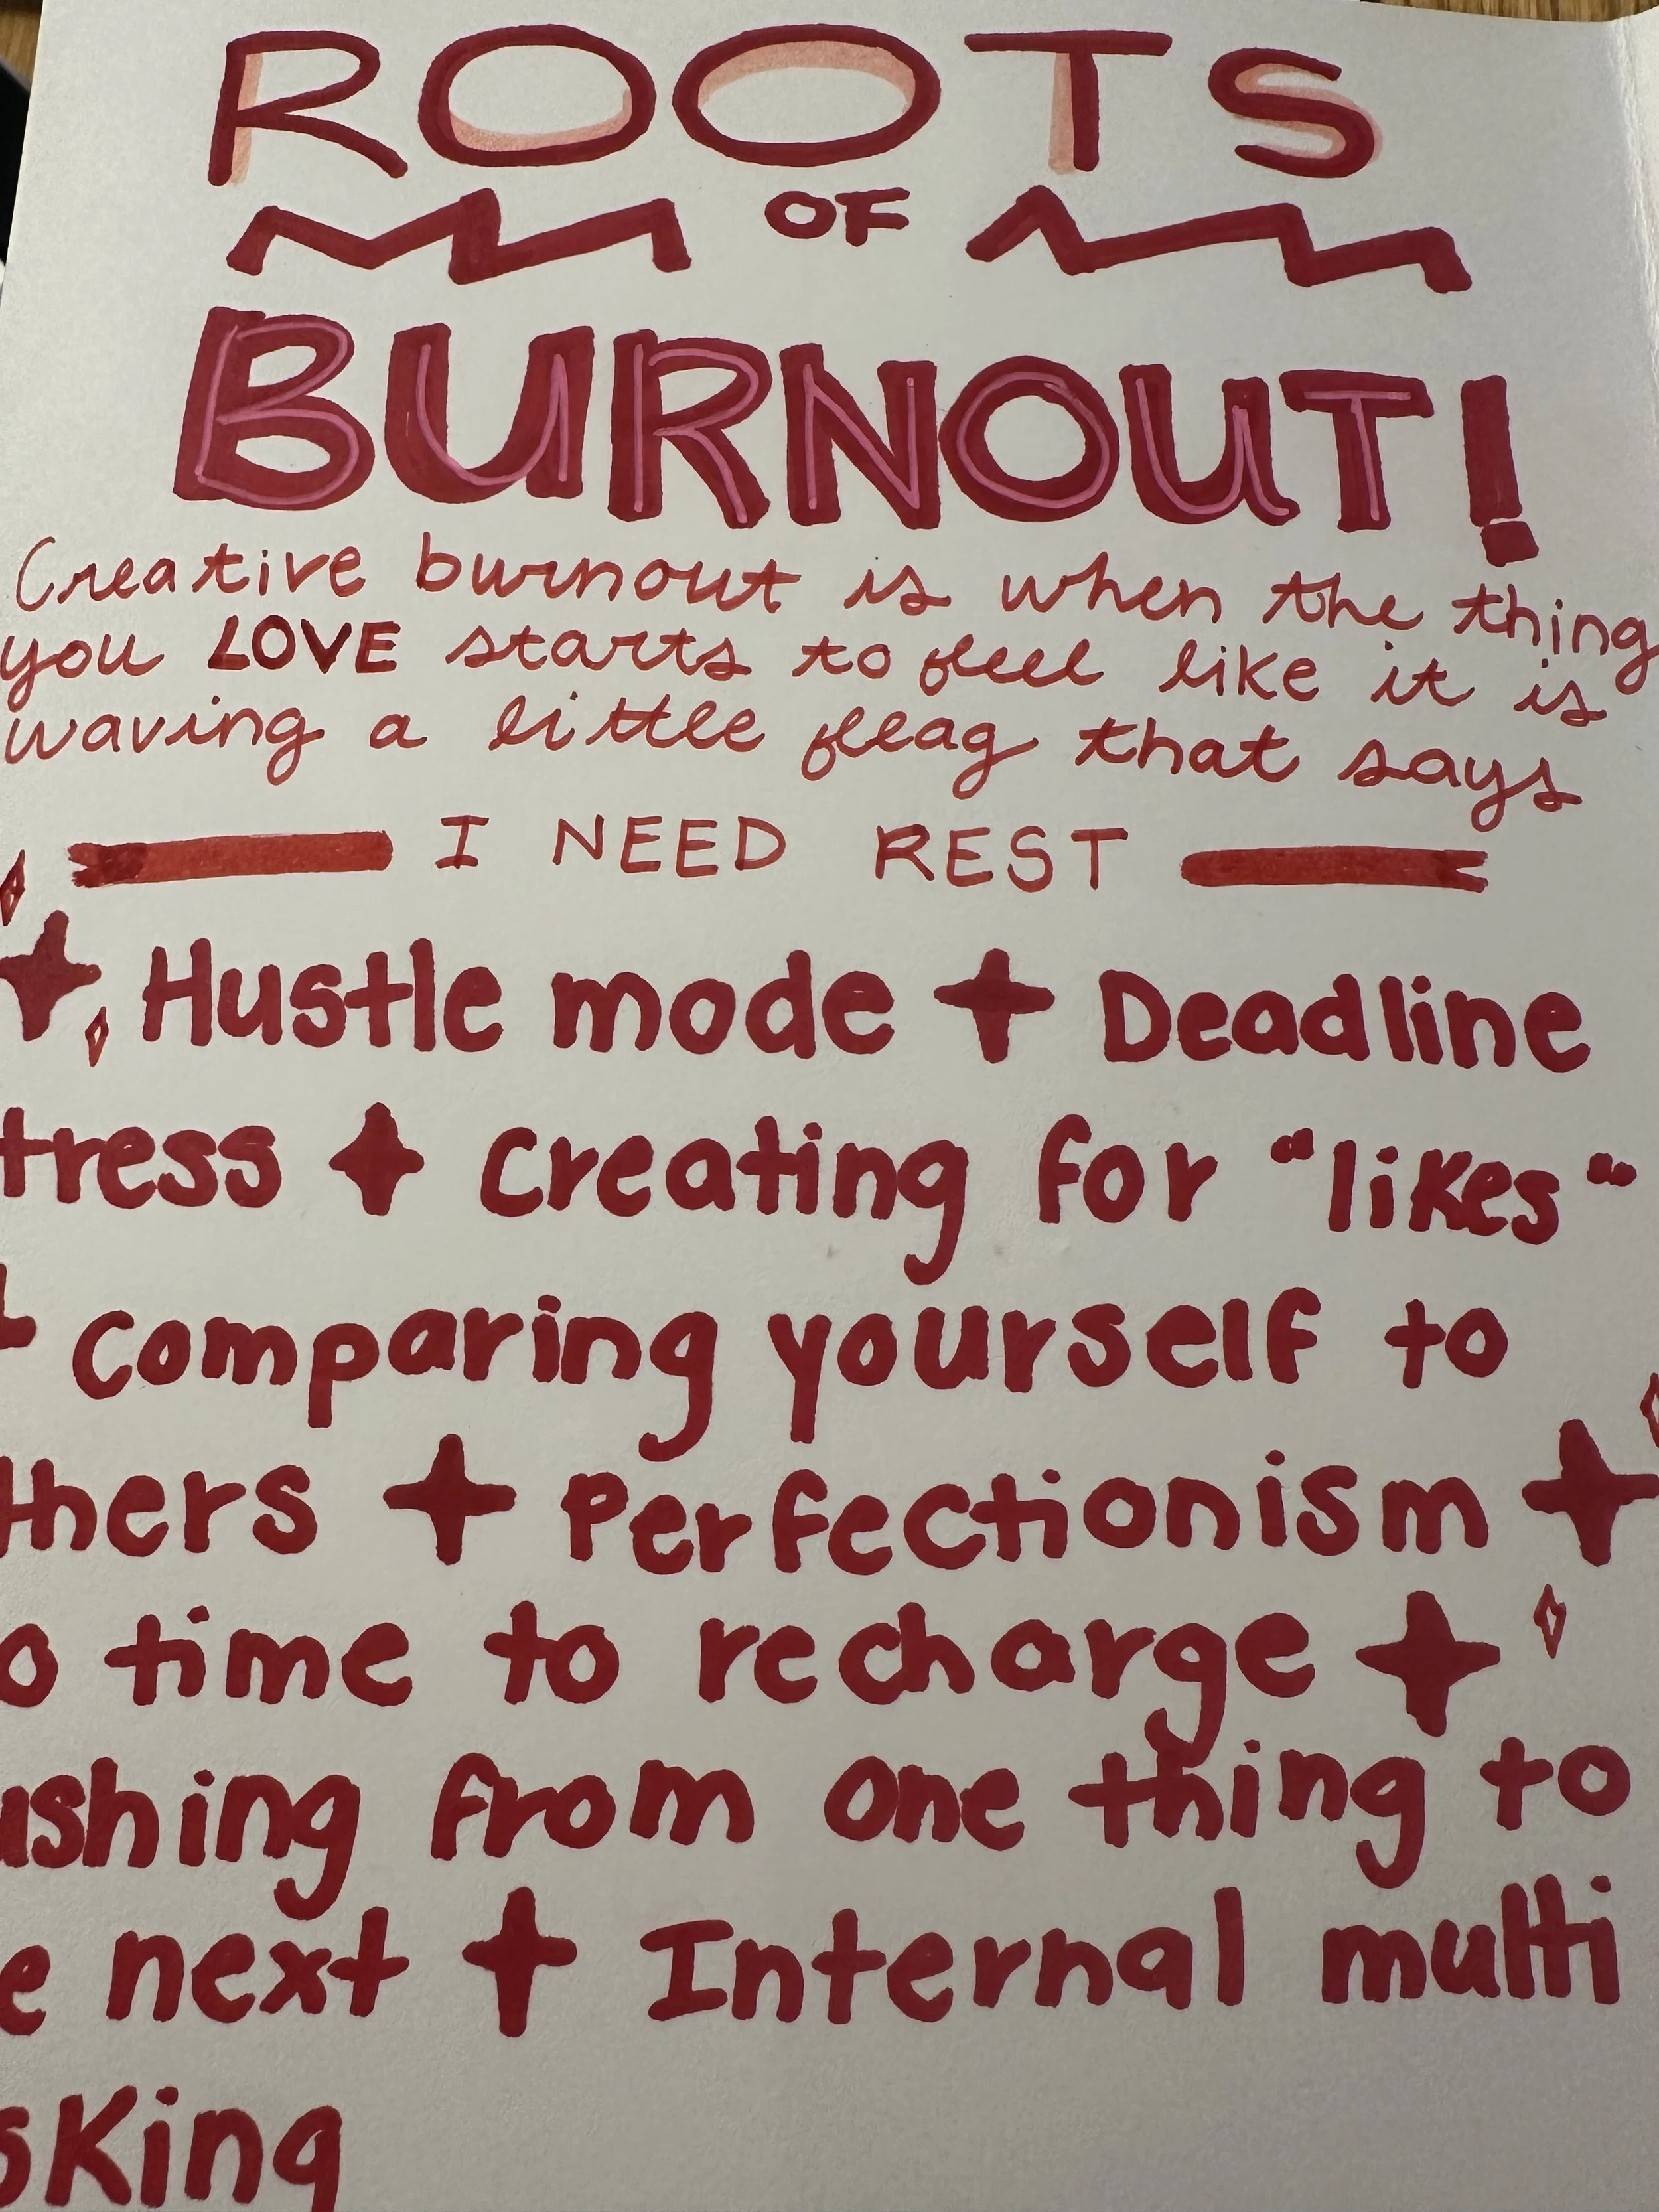 ROOTS
OF
BURNOUT!
Creative burnout is when the thing
you LOVE starts to feel like it is
waving a little fleag that says
I NEED REST
Hustle mode Deadline
tress Creating for "likes"
Comparing yourself to
thers Perfectionism
o time to recharge
ushing from one thing to
e next Internal multi
sking